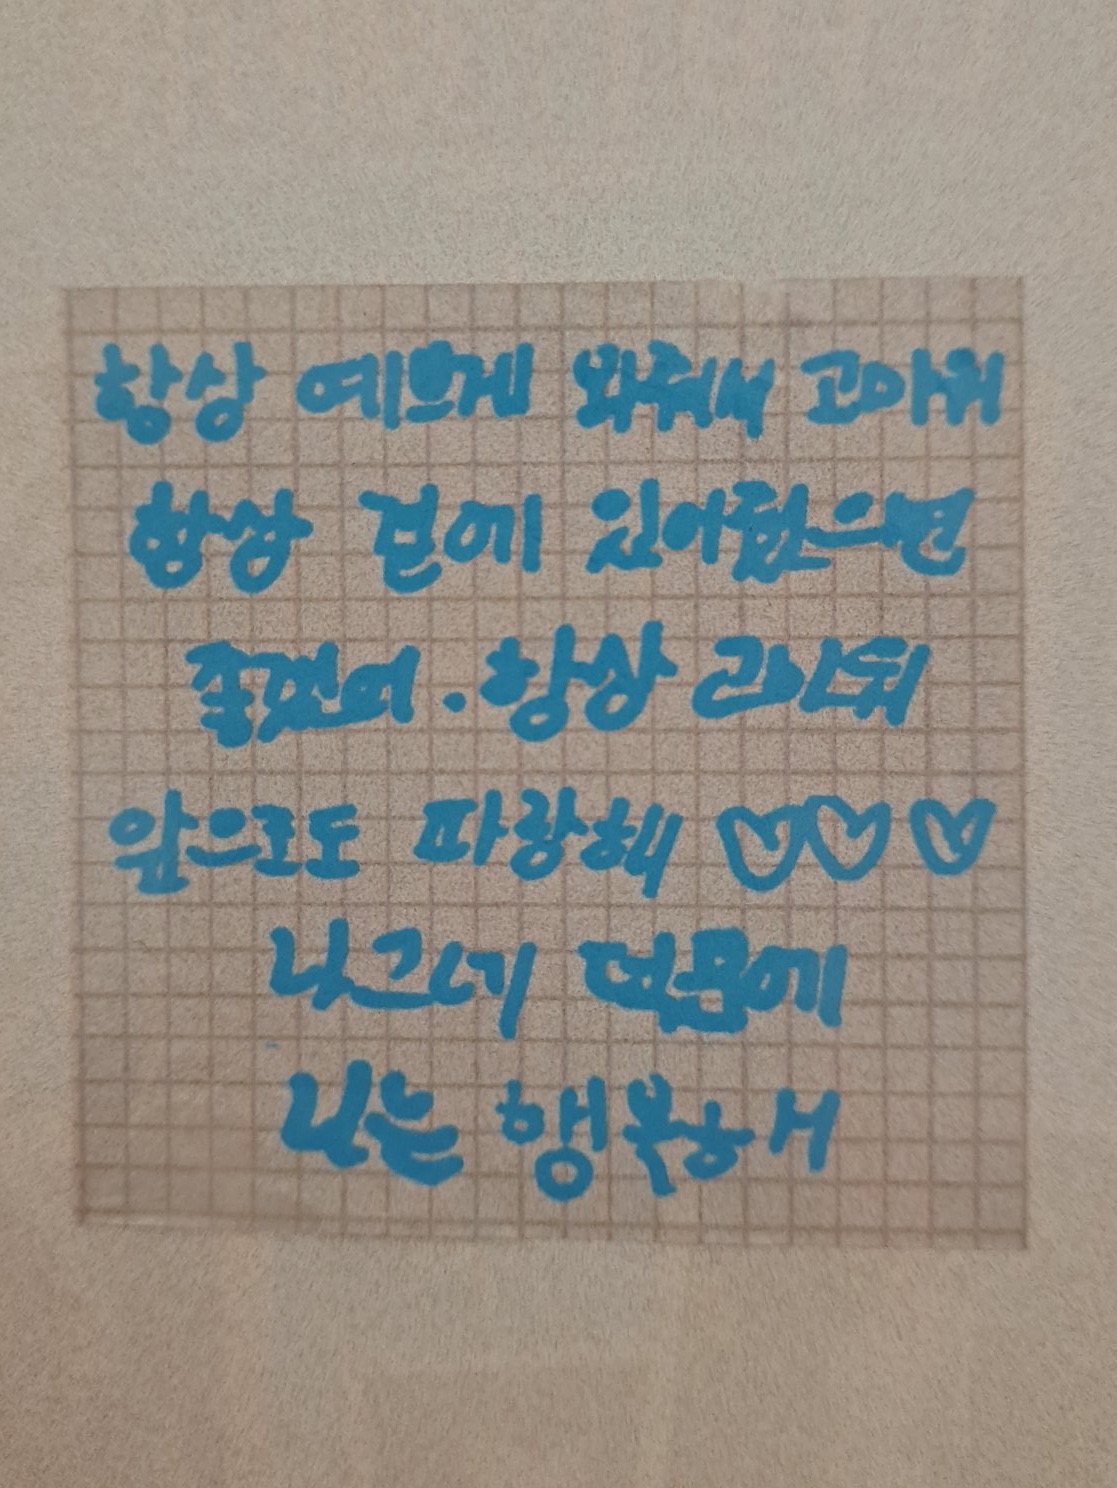 항상 예쁘게 봐줘서 고마워
항상 곁에 있어줬으면
좋겠어. 항상
앞으로도 파랑해 ♡♡♡
덕분에
나는 행복해